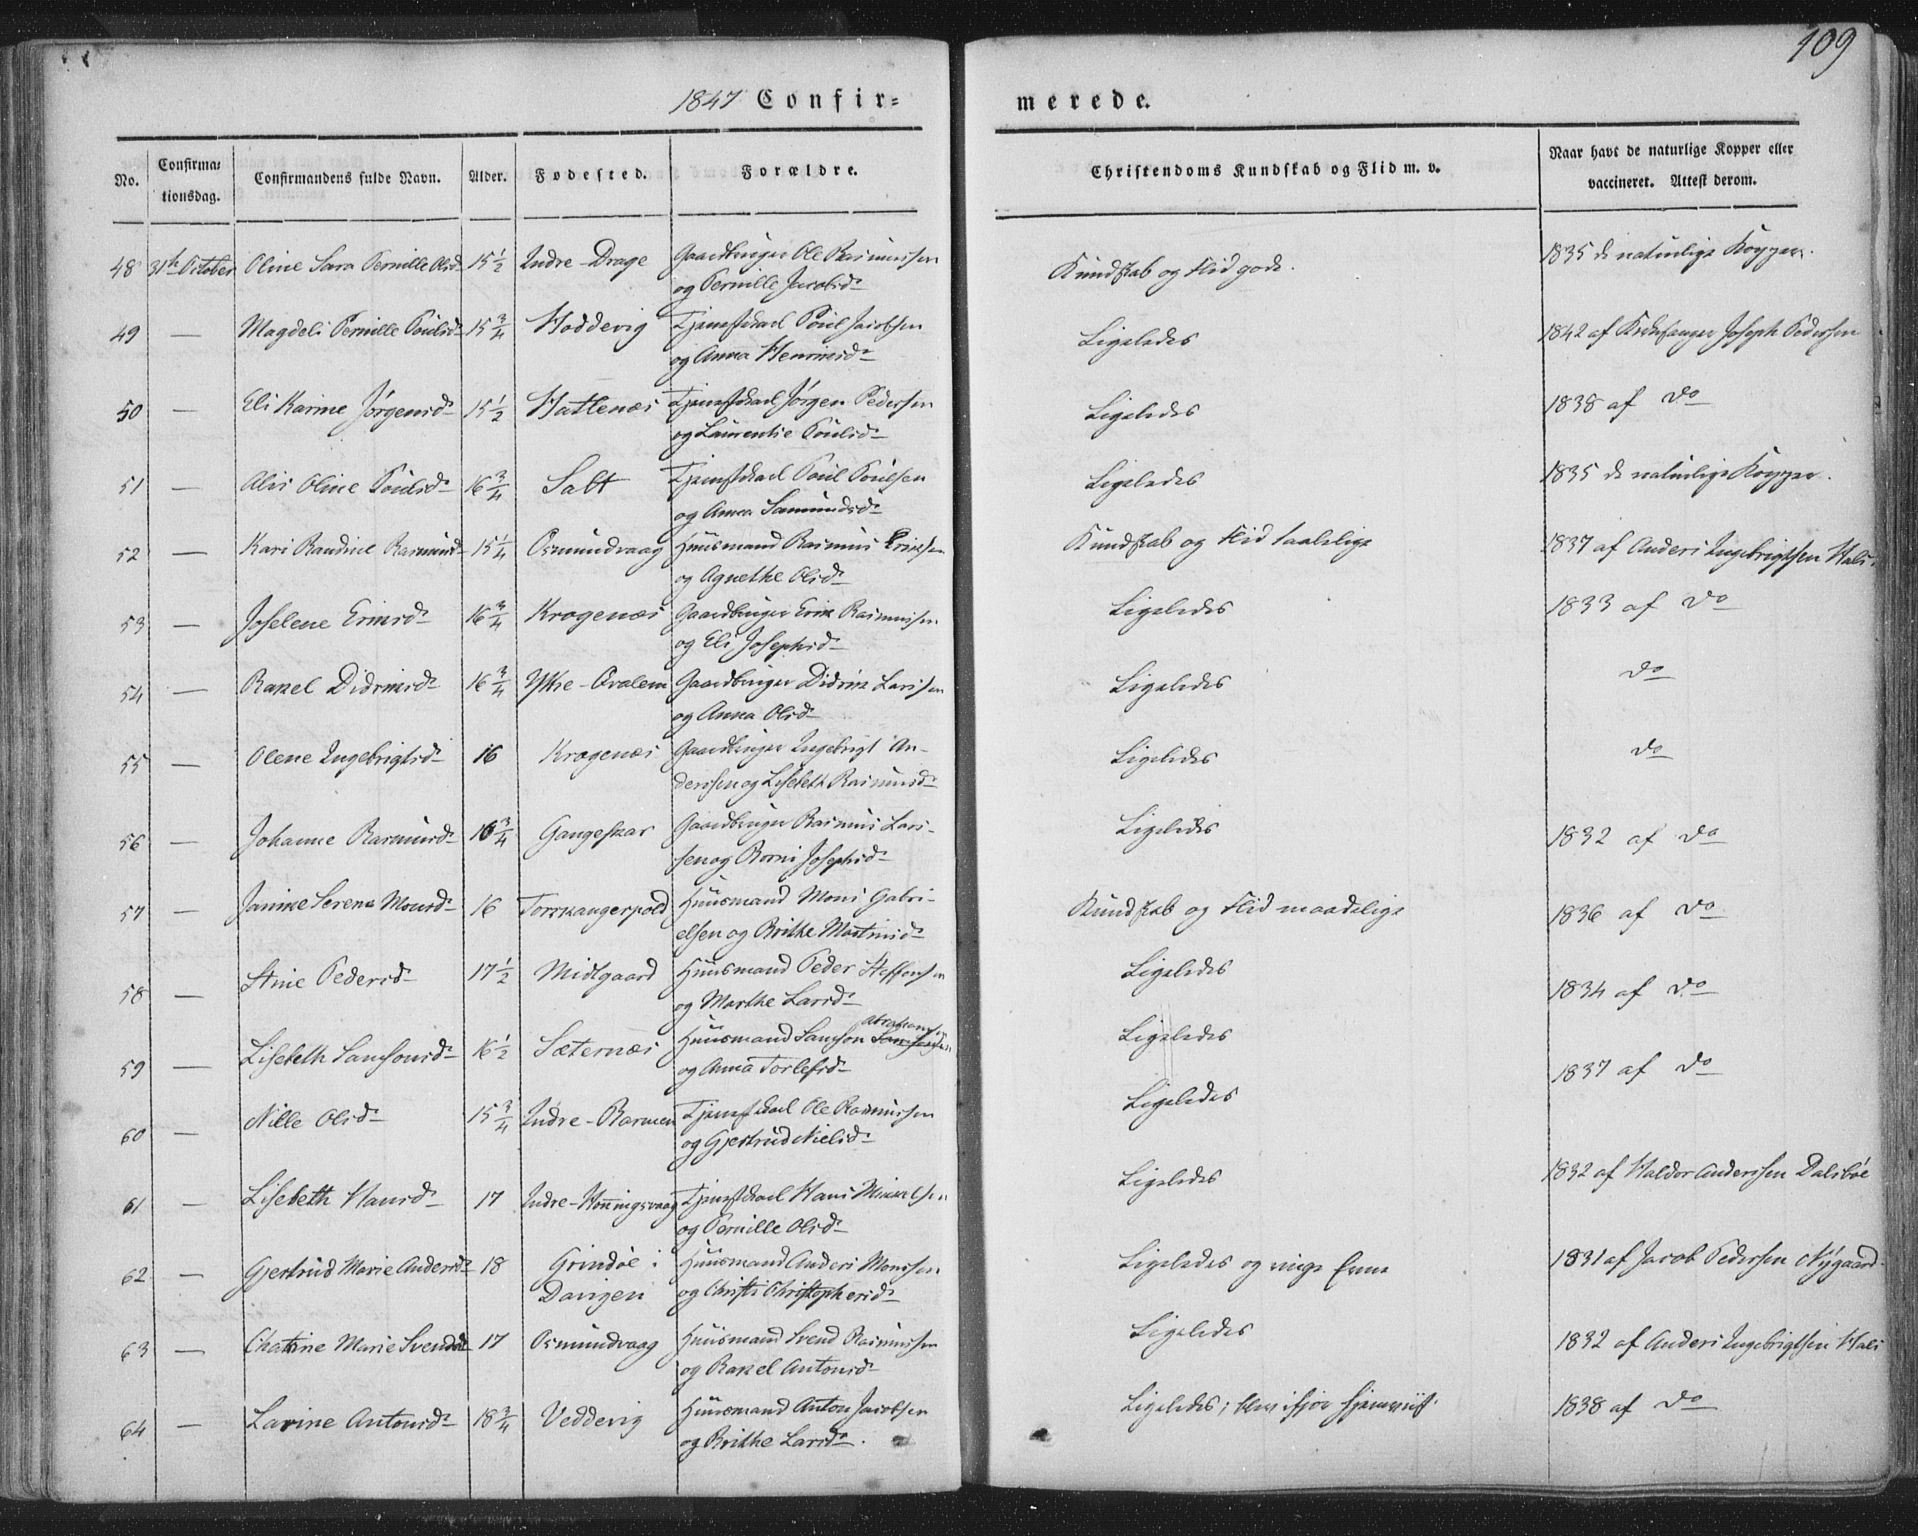 109
1847 Confir=
merede.
No.
Confirma=
tionsdag.
Confirmandens fulde Navn.
Alder.
Fødested.
Forældre.
Christendoms Kundskab og Flid m. v.
Naar havt de naturlige Kopper eller
vaccineret. Attest derom.
48 31te October Oline Sara Pernille Olsd. 15 1/2 Indre-Drage Gaardbruger Ole Rasmussen Kundskab og Flid gode. 1835 de naturlige Kopper.
og Pernille Jacobsd.
49 — Magdeli Pernille Poulsd. 15 3/4 Hoddevig Tjenestkarl Poul Jacobsen Ligeledes 1842 af Kirkesanger Joseph Pedersen
og Anna Henriksd.
50 — Eli Karine Jørgensd. 15 1/2 Hatlenæs Tjenestkarl Jørgen Pedersen Ligeledes 1838 af do
og Laurentie Poulsd.
51 — Alis Oline Poulsd. 16 3/4 Salt Tjenestkarl Poul Poulsen Ligeledes 1835 de naturlige Kopper.
og Anna Samundsd.
52 — Kari Raudine Rasmusd. 15 1/4 Osmundvaag Huusmand Rasmus Eriksen Kundskab og Flid taalelige 1837 af Anders Ingebrigtsen Hals
og Agnethe Olsd.
53 — Joselene Eriksd. 16 3/4 Krogenæs Gaardbruger Erik Rasmussen Ligeledes 1833 af do
og Eli Josephsd.
54 — Rakel Didriksd. 16 3/4 Ytre-Qvalem Gaardbruger Didrik Larssen Ligeledes do
og Anna Olsd.
55 — Olene Ingebrigtsd. 16 Krogenæs Gaardbruger Ingebrigt An- Ligeledes do
derssen og Lisebeth Rasmusd.
56 — Johanne Rasmusd. 16 3/4 Gangeskar Gaardbruger Rasmus Lars- Ligeledes 1832 af do
sen og Borni Josephsd.
57 — Janike Serene Monsd. 16 Torskangerpold Huusmand Mons Gabri- Kundskab og Flid maadelige 1836 af do
elsen og Brithe Martinsd.
58 — Stine Pedersd. 17 1/2 Midtgaard Huusmand Peder Steffensen Ligeledes 1834 af do
og Marthe Larsd.
59 — Lisebeth Samsonsd. 16 1/2 Sæternæs Huusmand Samson Abrahamsen Ligeledes 1837 af do
og Anna Torlefsd.
60 — Nille Olsd. 15 3/4 Indre-Barmen Tjenestkarl Ole Rasmussen Ligeledes
og Gjertrud Nielsd.
61 — Lisebeth Hansd. 17 Indre-Honningsvaag Tjenestkarl Hans Mikkelsen Ligeledes 1832 af Haldor Anderssen Dalsbøe
og Pernille Olsd.
62 — Gjertrud Marie Andersd. 18 Grindøe i Huusmand Anders Monssen Ligeledes og ringe Evne 1831 af Jacob Pedersen Nygaard.
Davigen og Christi Christophersd.
63 — Chatrine Marie Svendsd. 17 Osmundvaag Huusmand Svend Rasmussen Ligeledes 1832 af Anders Ingebrigtsen Hals
og Rakel Antonsd.
64 — Lavine Antonsd. 18 3/4 Veddevig Huusmand Anton Jacobsen Ligeledes; blev ifjor hjemviist. 1838 af do
og Brithe Larsd.